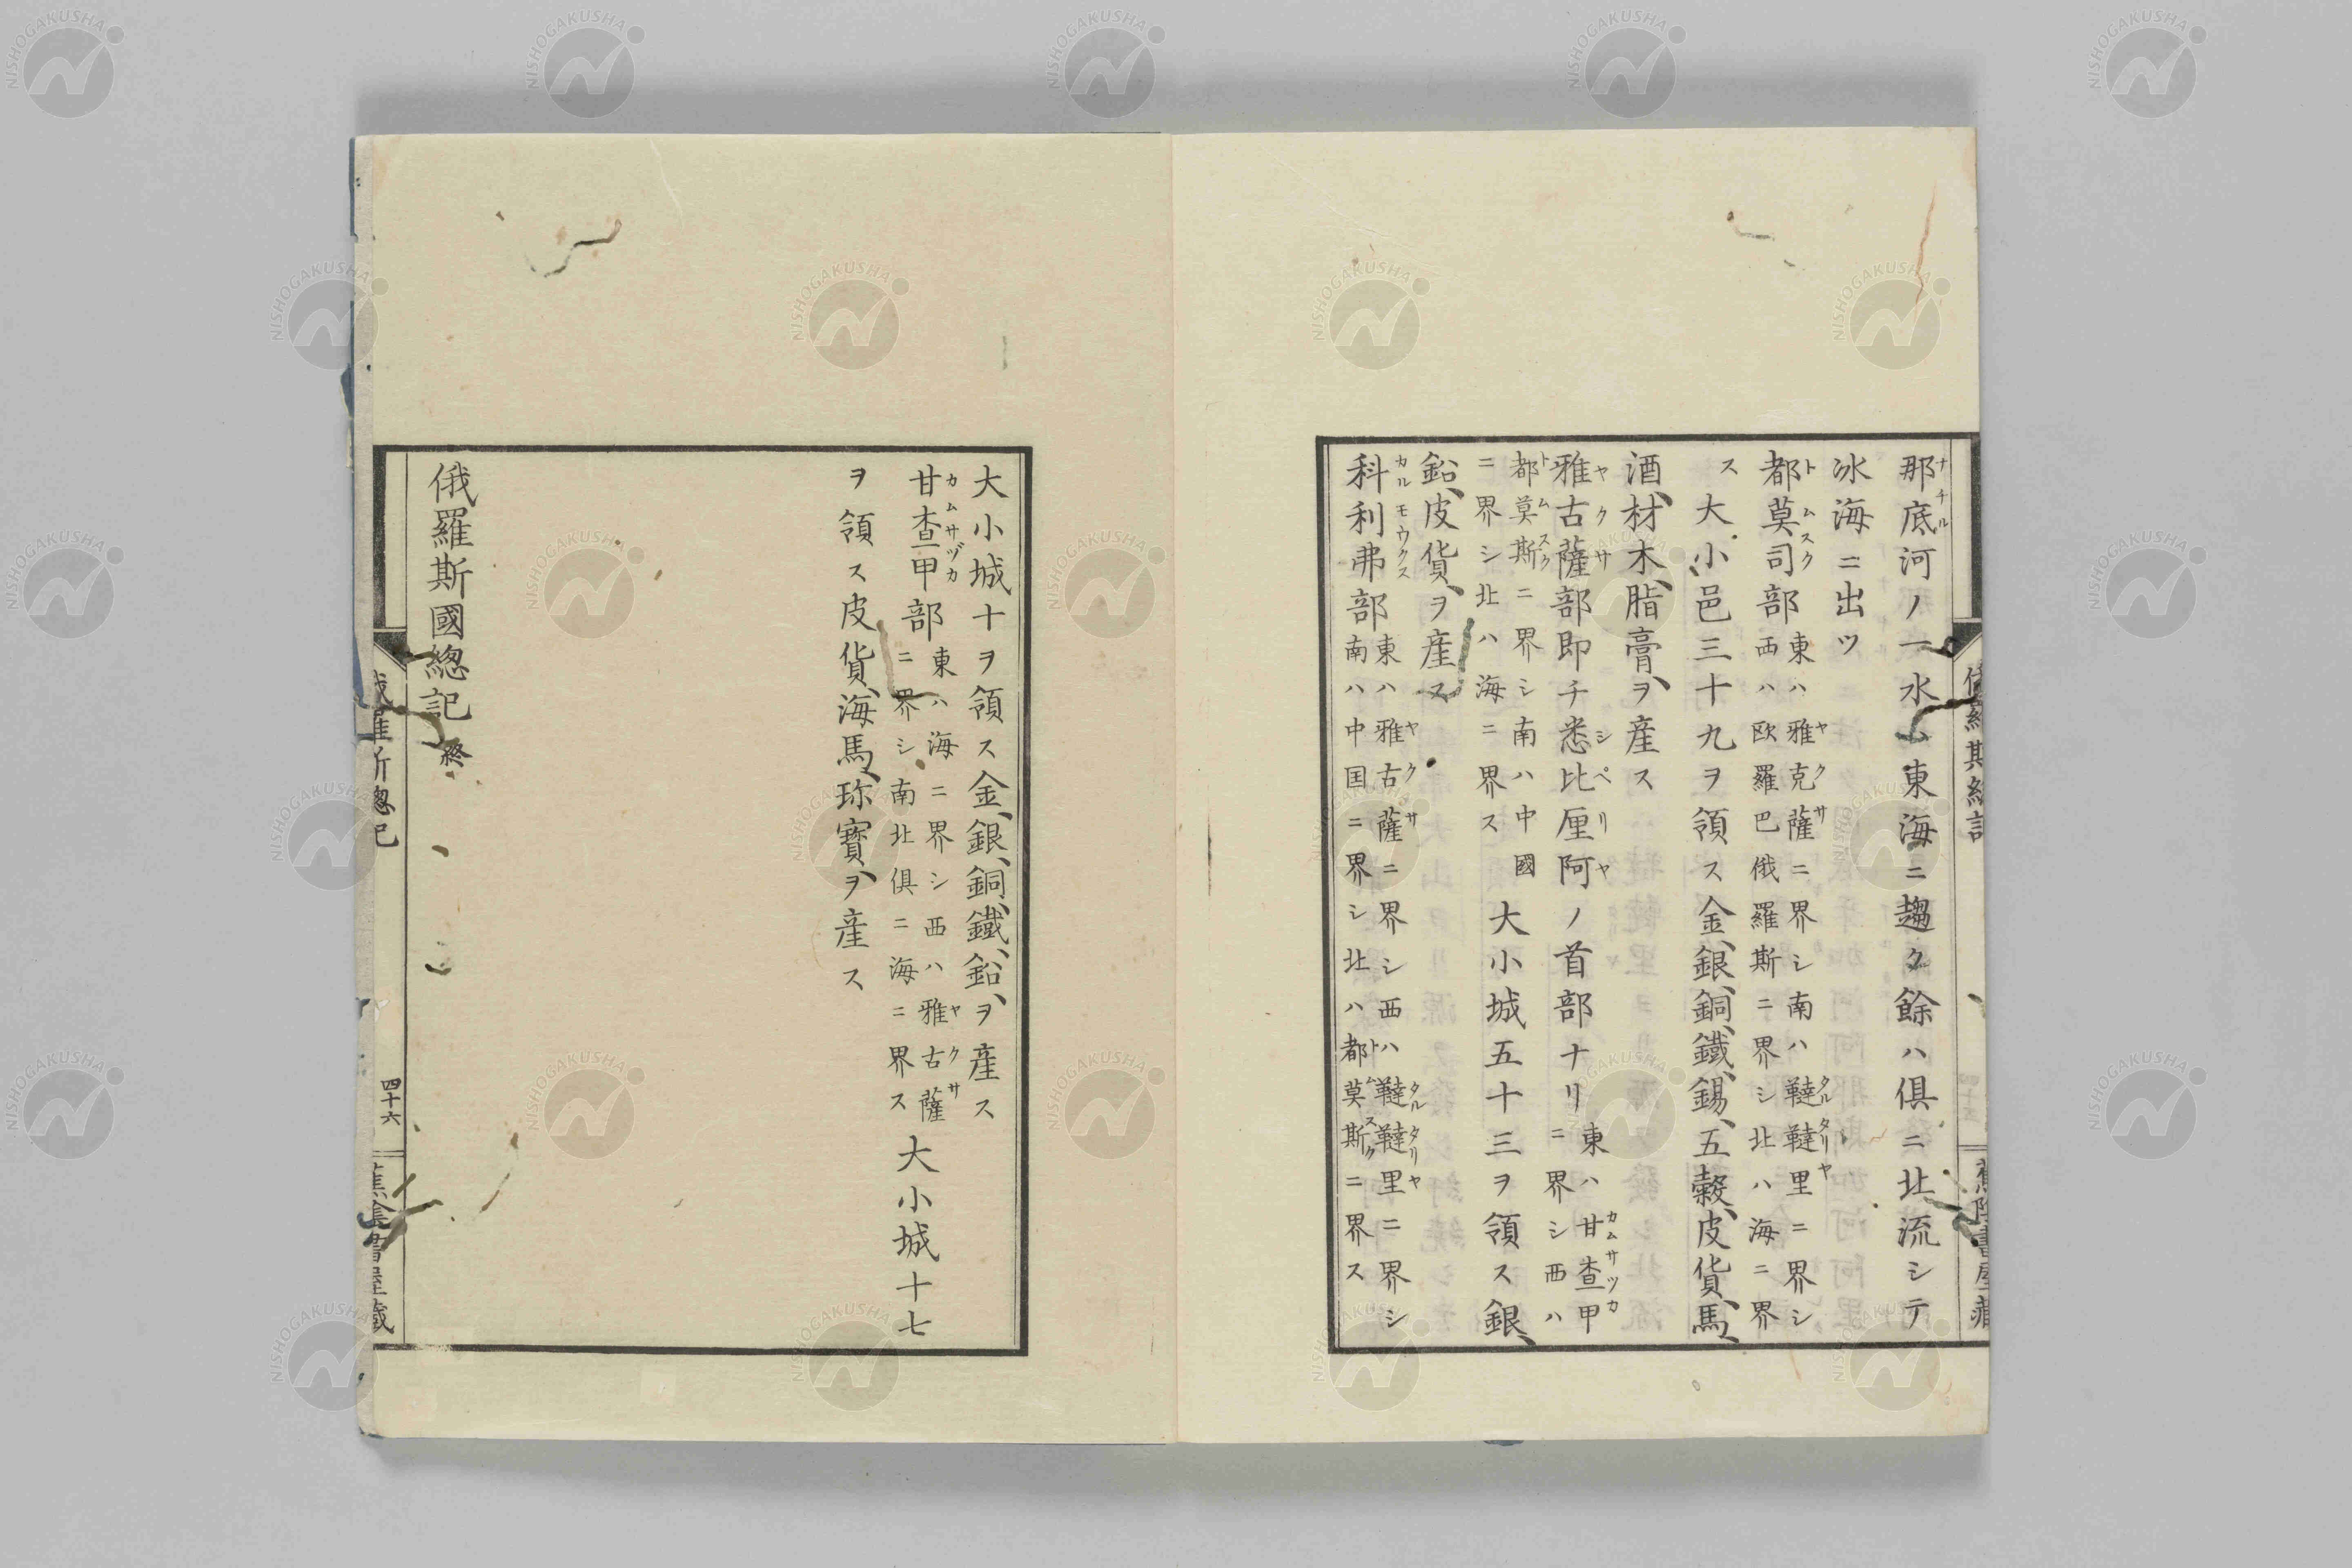 那底河ノ一水ハ東海ニ趨ク餘ハ俱ニ北流シテ
冰海ニ出ツ
都莫司部
東ハ雅克薩ニ界シ南ハ韃韃里ニ界シ
西ハ欧羅巴俄羅斯ニ界シ北ハ海ニ界
ス
大小邑三十九ヲ領ス金、銀、銅、鐵、錫、五穀、皮貨、馬、
酒、材木、脂膏、ヲ産ス
雅古薩部即チ悉比厘阿ノ首部ナリ
東ハ甘查甲
ニ界シ西ハ
都莫斯ニ界シ南ハ中國
ニ界シ北ハ海ニ界ス
大小城五十三ヲ領ス銀、
鉛、皮貨、ヲ産ス
科利弗部
東ハ雅古薩ニ界シ西ハ韃韃里ニ界シ
南ハ中国ニ界シ北ハ都莫斯ニ界ス
大小城十ヲ領ス金、銀、銅、鐵、鉛、ヲ産ス
甘查甲部
東ハ海ニ界シ西ハ雅古薩
ニ界シ南北俱ニ海ニ界ス
大小城十七
ヲ領ス皮貨、海馬、珎寶、ヲ産ス
俄羅斯國總記 終
四十六
NISHOGAKUSHA